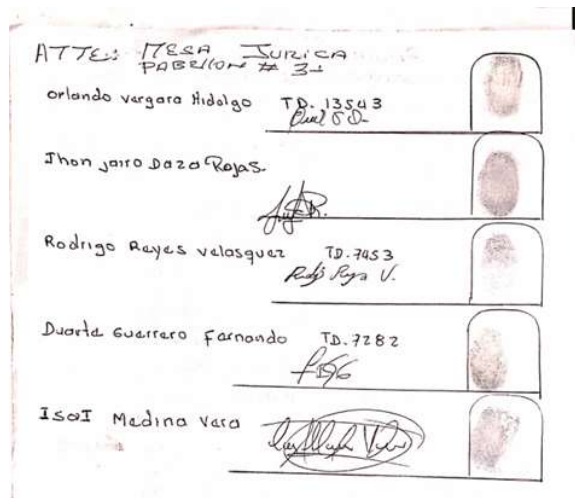 ATTE: MESA JURICA
PABELLON # 3
Orlando vargara Hidalgo TD. 13543
Jhon jairo Daza Rojas.
Rodrigo Reyes velasquez TD. 7453
Duarte Guerrero Farnando TD. 7282
IsaI Medina Vera